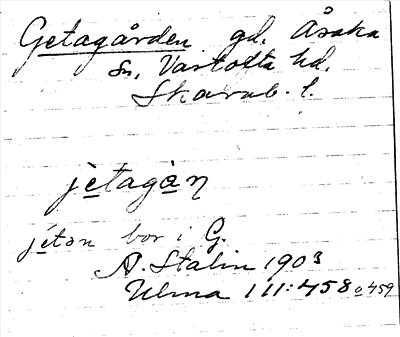 Getagården gd. Åsaka
sn, Vartofta hd.
Skarab. l.
jètagàn
jétən bor i G.
A. Stalin 1903
Ulma 111:458 o 459